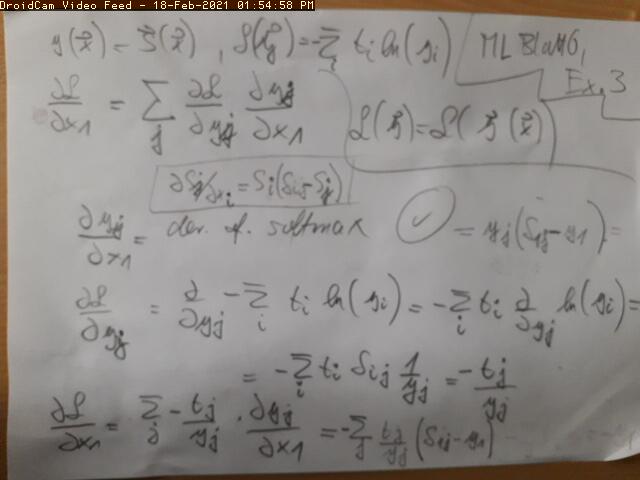 DroidCam Video Feed - 18-Feb-2021 01:54:58 PM
y(x⃗) = S⃗(x⃗) , L(y⃗) = -Σ_i t_i ln(y_i)
ML Blatt 6,
Ex. 3
∂L/∂x1 = Σ_j ∂L/∂y_j ∂y_j/∂x1
L(y⃗) = L( y⃗ (x⃗) )
∂S_j/∂x_i = S_i(δ_ij - S_j)
∂y_j/∂x1 = der. of. softmax ✓ = y_j(δ_1j - y_1) =
∂L/∂y_j = ∂/∂y_j -Σ_i t_i ln(y_i) = -Σ_i t_i ∂/∂y_j ln(y_i) =
= -Σ_i t_i δ_ij 1/y_j = -t_j/y_j
∂L/∂x1 = Σ_j -t_j/y_j · ∂y_j/∂x1 = -Σ_j t_j/y_j (δ_1j - y_1)